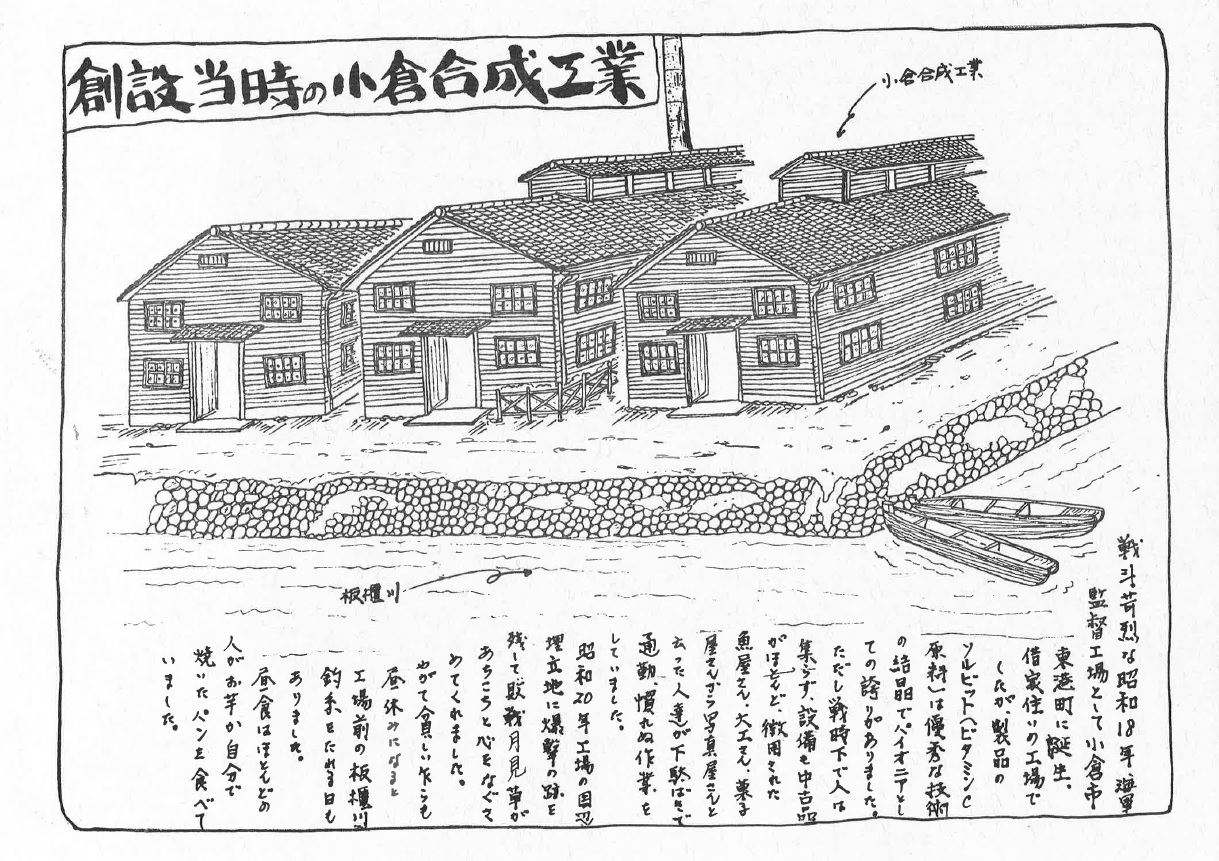 創設当時の小倉合成工業
小倉合成工業
板櫃川
戦斗苛烈な昭和18年海軍
監督工場として小倉市
東港町に誕生。
借家住いの工場で
したが製品の
ソルビット(ビタミンC
原料)は優秀な技術
の結晶でパイオニアとし
ての誇りがありました。
ただし戦時下で人は
集らず、設備も中古品
がほとんど、徴用された
魚屋さん、大工さん、菓子
屋さんから写真屋さんと
云った人達が下駄ばきで
通勤、慣れぬ作業を
していました。
昭和20年工場の周辺
埋立地に爆撃の跡を
残して敗戦月見草が
あちこちと心をなぐさ
めてくれました。
やがて貧しい乍らも
昼休みになると
工場前の板櫃川
釣糸をたれる日も
ありました。
昼食はほとんどの
人がお芋か自分で
焼いたパンを食べて
いました。